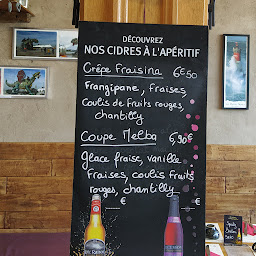 DÉCOUVREZ
NOS CIDRES À L'APÉRITIF
Crêpe Fraisina 6€50
Frangipane, fraises
Coulis de fruits rouges,
chantilly
Coupe Melba 6,90€
Glace fraise, vanille
Fraises, coulis fruits
rouges, chantilly
€
€